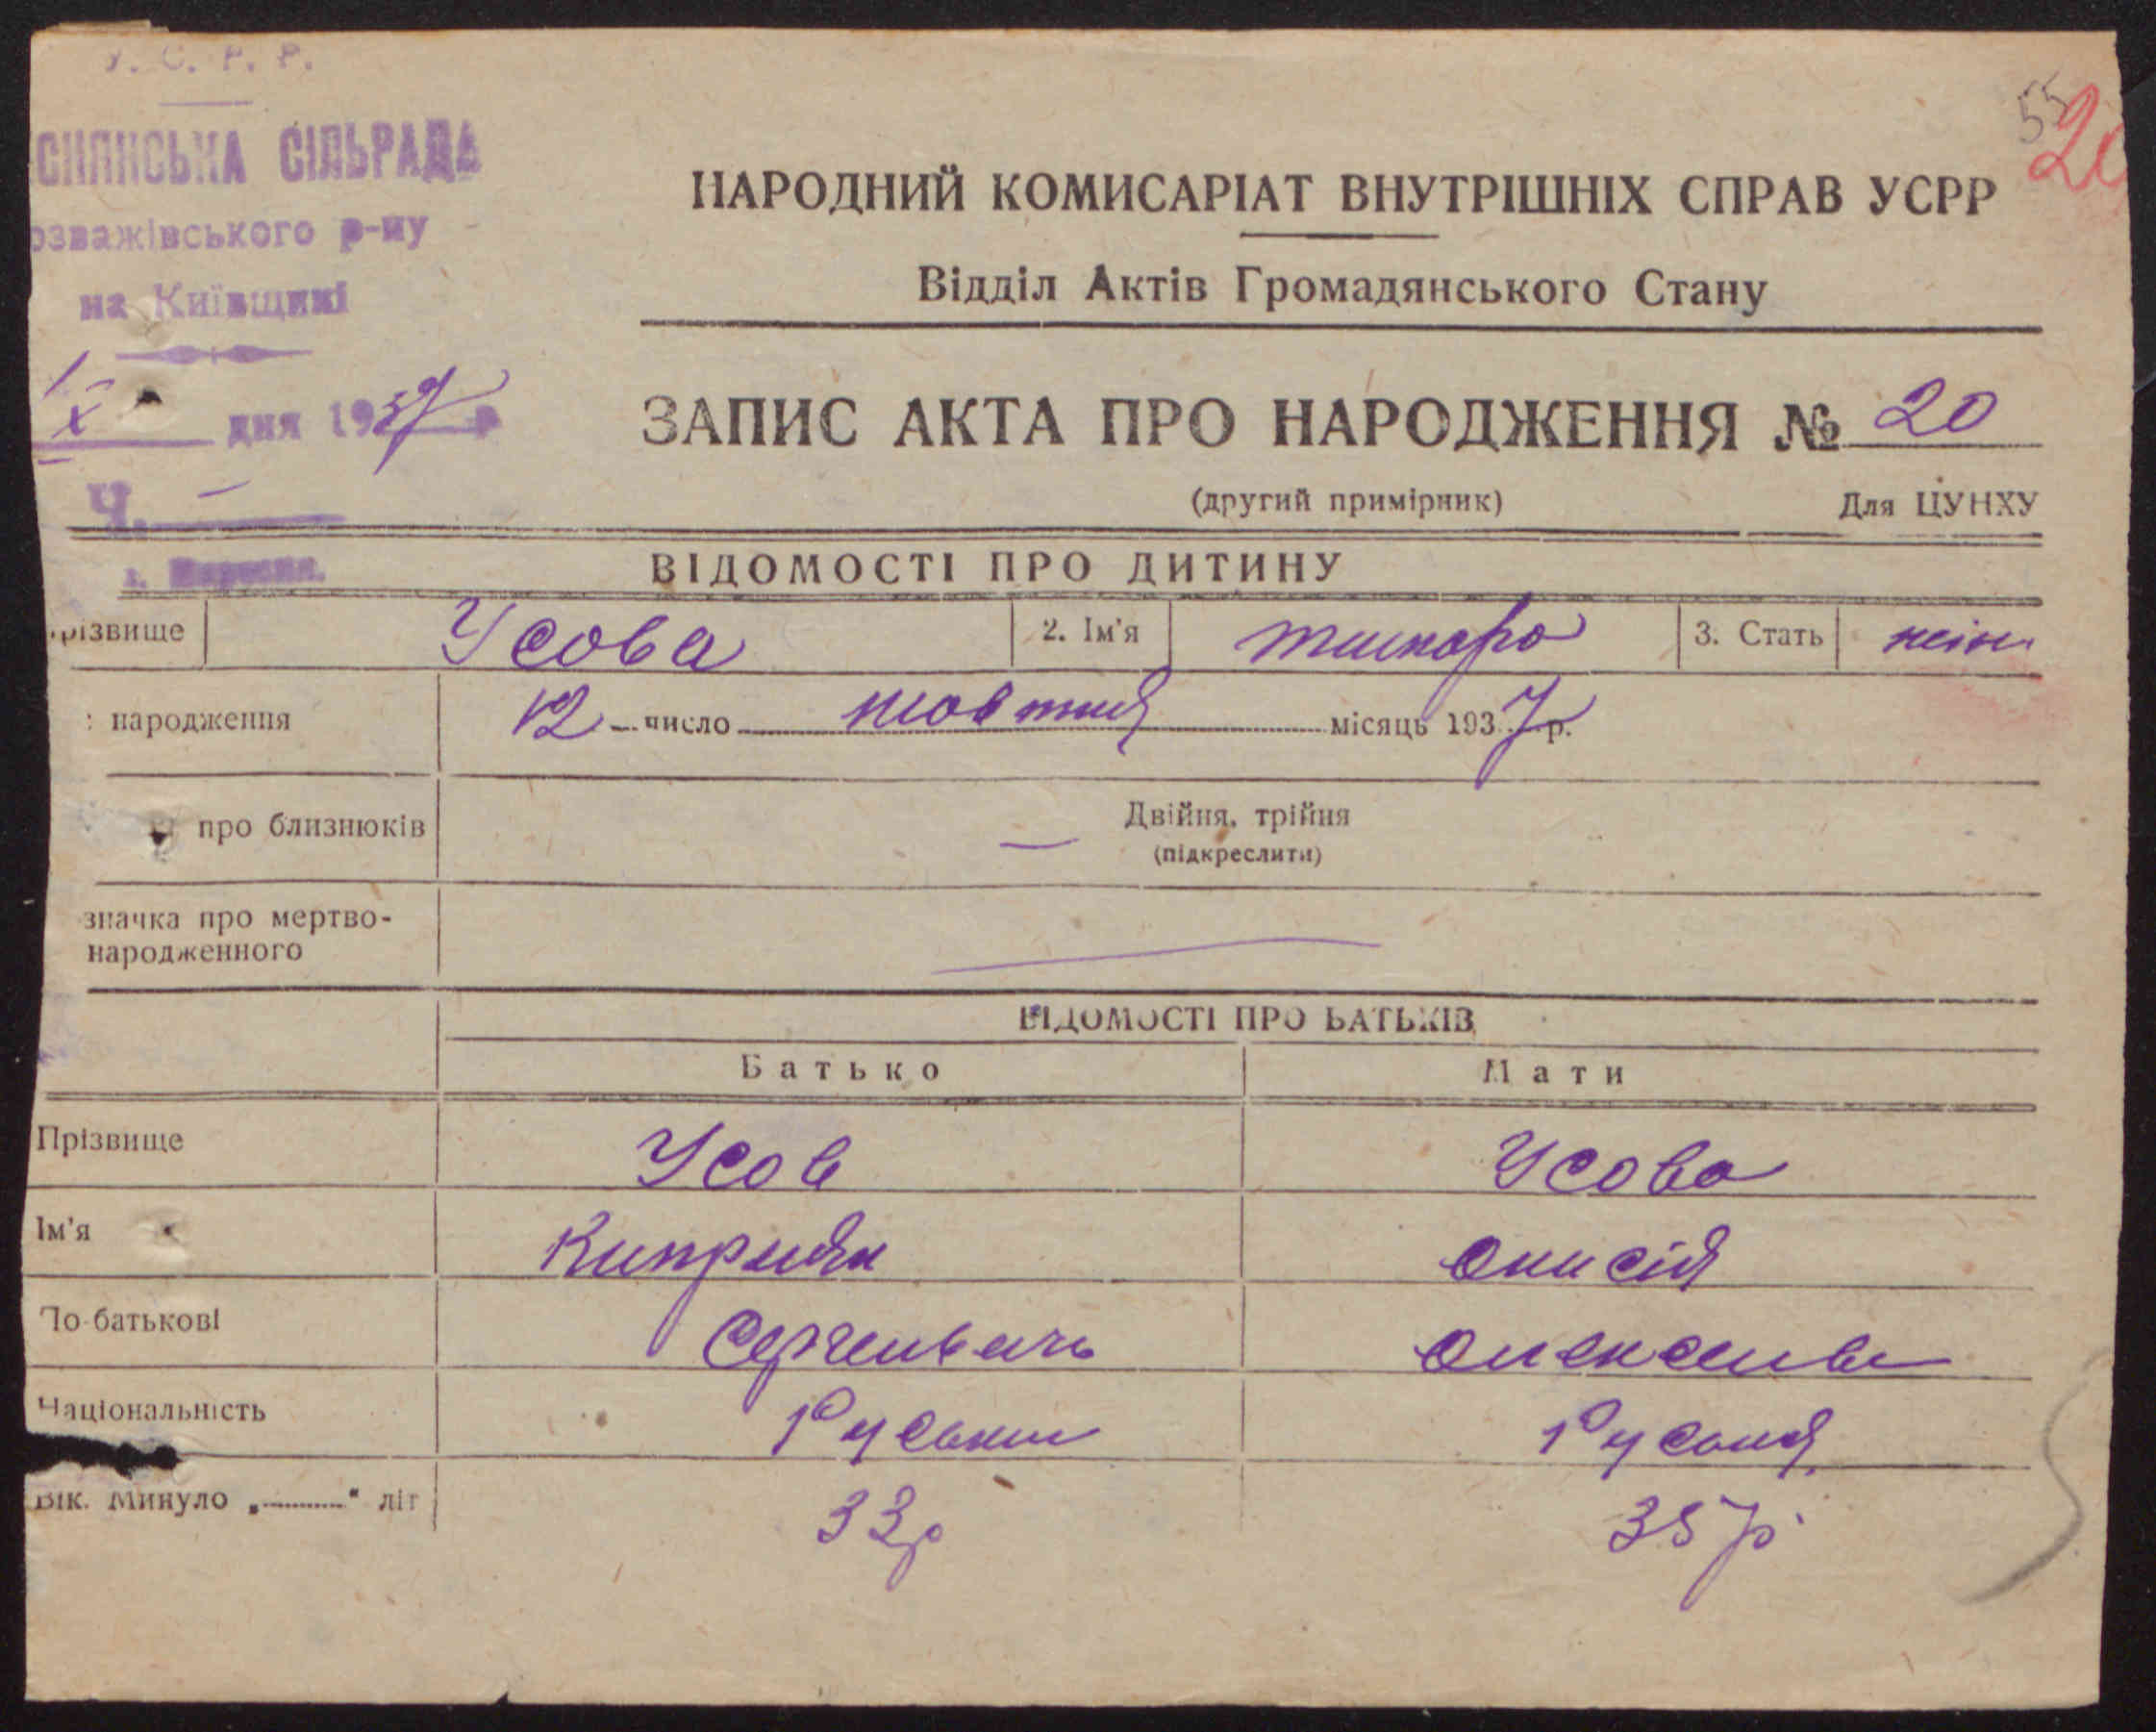 У. С. Р. Р.
СІЛЬРАДА
озважівського р-ну
на Київщині
X дня 1937 р
Ч. —
55
20
НАРОДНИЙ КОМИСАРІАТ ВНУТРІШНІХ СПРАВ УСРР
Відділ Актів Громадянського Стану
ЗАПИС АКТА ПРО НАРОДЖЕННЯ № 20
(другий примірник) Для ЦУНХУ
ВІДОМОСТІ ПРО ДИТИНУ
різвище Усова 2. Ім'я 3. Стать жін
народження 12 число жовтня місяць 1937 р.
про близнюків — Двійня, трійня
(підкреслити)
значка про мертво-
народженного —
ВІДОМОСТІ ПРО БАТЬКІВ
Батько Мати
Прізвище Усов Усова
Ім'я Киприян Онисія
По-батькові Сергеивичь Олексеивн
Національність Руський Руська
Вік. Минуло „ “ літ 33р 35 р